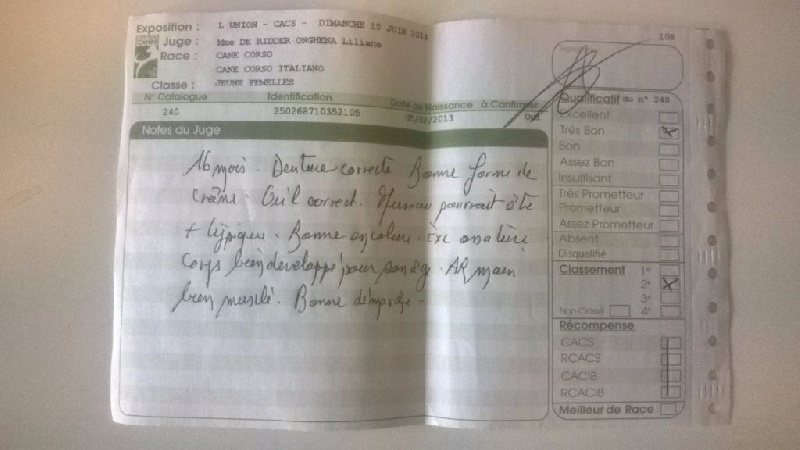 108
Exposition : L UNION - CACS - DIMANCHE 15 JUIN 2014
Juge : Mme DE RIDDER ONGHENA Liliane
Race : CANE CORSO
CANE CORSO ITALIANO
Classe : JEUNE FEMELLES
N° Catalogue Identification Date de Naissance à Confirmer
240 250268710352105 05/02/2013 oui
Notes du Juge
16 mois. Denture correcte Bonne forme de
crâne. Oeil correct. Museau pourrait être
+ typique. Bonne encolure. ossature
Corps bien développé pour son âge. AR main
bien musclé. Bonne démarche.
Qualificatif du n° 240
Excellent
Très Bon
Bon
Assez Bon
Insuffisant
Très Prometteur
Prometteur
Assez Prometteur
Absent
Disqualifié
Classement 1e
2e
3e
Non Classé 4e
Récompense
CACS
RCACS
CACIB
RCACIB
Meilleur de Race